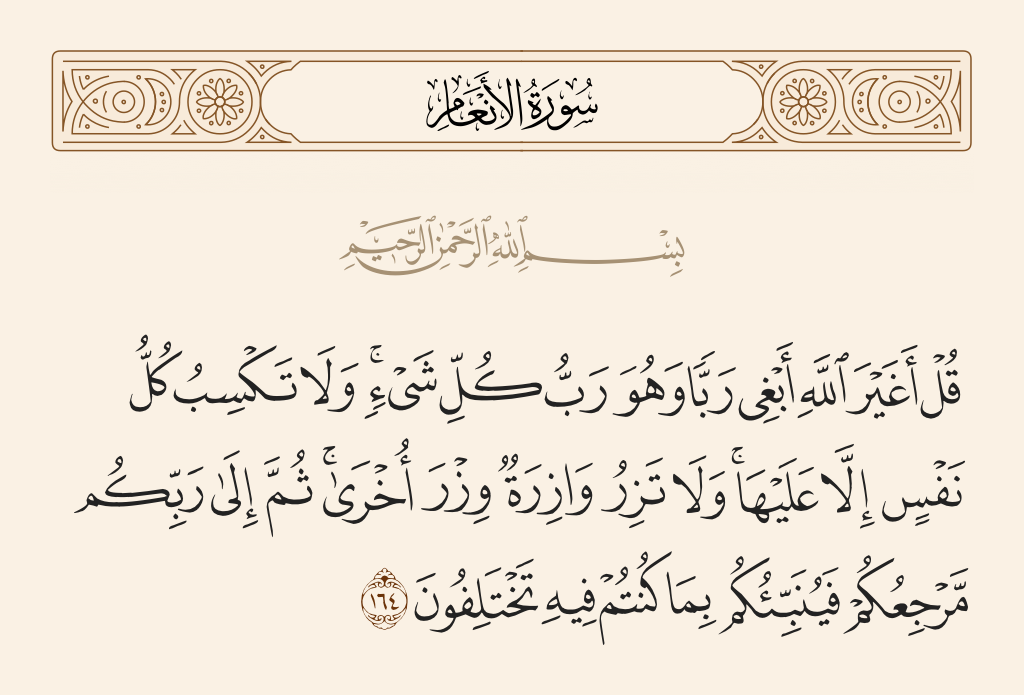 سُورَةُ الأَنْعَامِ
بِسْمِ ٱللَّهِ ٱلرَّحْمَٰنِ ٱلرَّحِيمِ
قُلْ أَغَيْرَ ٱللَّهِ أَبْغِى رَبًّا وَهُوَ رَبُّ كُلِّ شَىْءٍ ۚ وَلَا تَكْسِبُ كُلُّ
نَفْسٍ إِلَّا عَلَيْهَا ۚ وَلَا تَزِرُ وَازِرَةٌ وِزْرَ أُخْرَىٰ ۚ ثُمَّ إِلَىٰ رَبِّكُم
مَّرْجِعُكُمْ فَيُنَبِّئُكُم بِمَا كُنتُمْ فِيهِ تَخْتَلِفُونَ ١٦٤